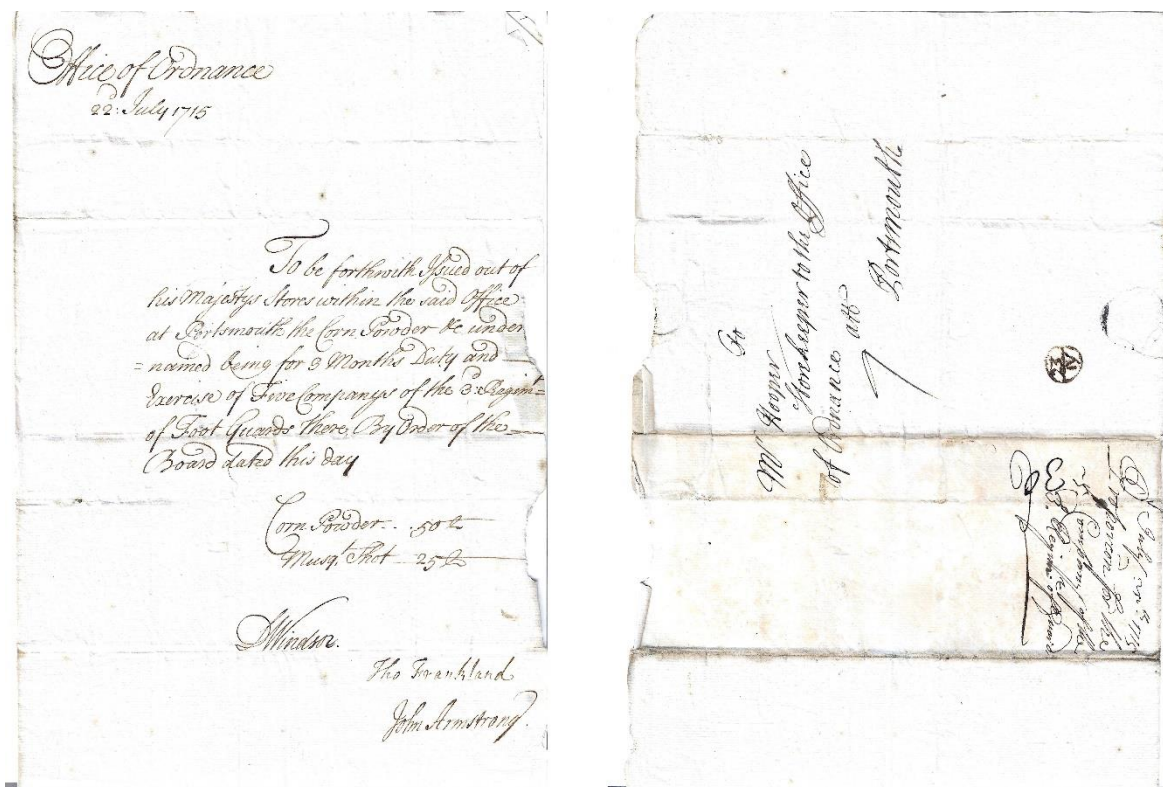 Office of Ordnance
22d: July 1715
To be forthwith Issued out of
his Majestys Stores within the said Office
at Portsmouth the Corn Powder &c under
=named being for 3 Months Duty and
Exercise of Five Companys of the 3d: Regimt=
of Foot Guards there By Order of the
Board dated this day
Corn Powder .. 50 lb
Musqt. Shot — 25 lb
Windsor.
Tho Frankland
John Armstrong.
To
Mr Hooper
Storekeeper to the Office
of Ordnance att
Portsmouth
July 1715
for the
5 Companys of the
3d. Regimt. of Guards